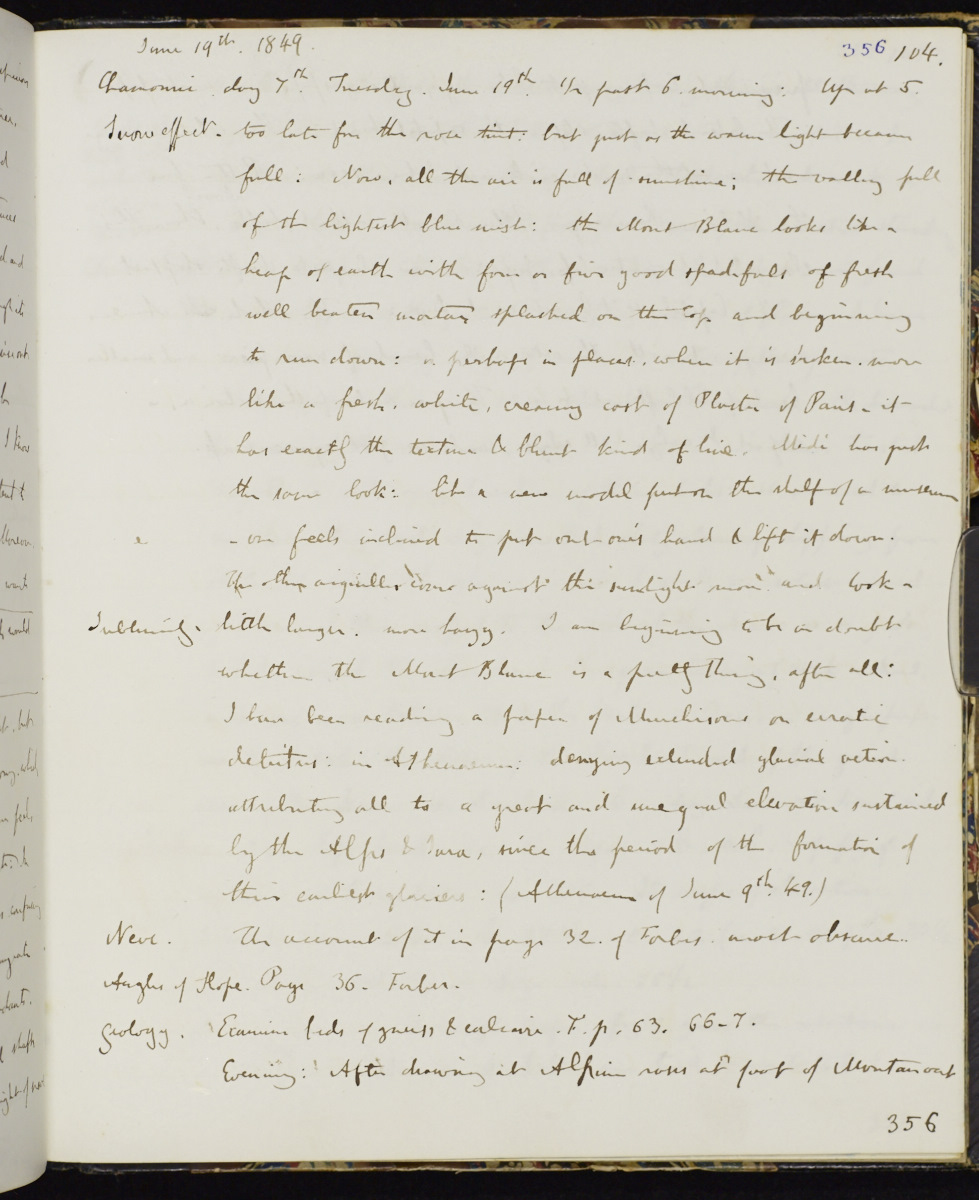 June 19th. 1849.
356 104.
Chamonix. day 7th. Tuesday. June 19th. 1/2 past 6. morning: Up at 5.
Snow effect. too late for the rose tint: but just as the warm light became
full: Now, all the air is full of sunshine; the valley full
of the lightest blue mist: the Mont Blanc looks like a
heap of earth with four or five good spadefuls of fresh
well beaten mortar splashed on the top and beginning
to run down: or perhaps in places, when it is broken, more
like a fresh, white, creamy cast of Plaster of Paris - it
has exactly the texture & blunt kind of line. Midi has just
the same look: like a new model put on the shelf of a museum
- one feels inclined to put out one's hand & lift it down.
The other aiguilles come against the sunlight more and look a
Sublimity. little larger. more hazy. I am beginning to be in doubt
whether the Mont Blanc is a pretty thing, after all:
I have been reading a paper of Murchisons on erratic
detritus: in Athenaeum: denying extended glacial action.
attributing all to a great and unequal elevation sustained
by the Alps & Jura, since the period of the formation of
their earliest glaciers: (Athenaeum of June 9th. 49.)
Neve. The account of it in page 32. of Forbes. most obscure..
Angles of Slope. Page 36. Forbes.
Geology. Examine beds of gneiss & calcaire. F. p. 63. 66-7.
Evening: After drawing at Alpine roses at foot of Montanvert
356